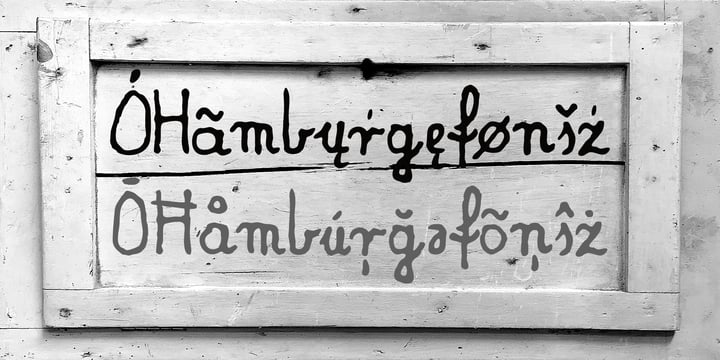 ÓHãmbųŕgęfønšż
ŌĦåmbúŗğəfõņŝż